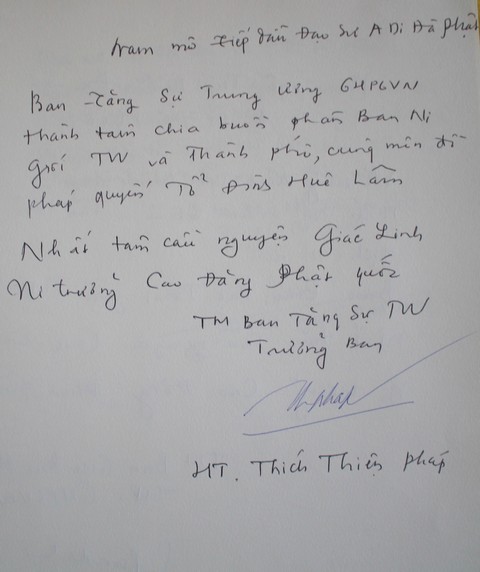 Nam mô tiếp dẫn Đạo Sư A Di Đà Phật
Ban Tăng Sự Trung ương GHPGVN
thành tâm chia buồn phân Ban Ni
giới TW và Thành phố, cùng môn đồ
pháp quyến Tổ Đình Huê Lâm
Nhất tâm cầu nguyện Giác Linh
Ni trưởng Cao Đăng Phật quốc
TM Ban Tăng Sự TW
Trưởng Ban
Thpháp
HT. Thích Thiện Pháp